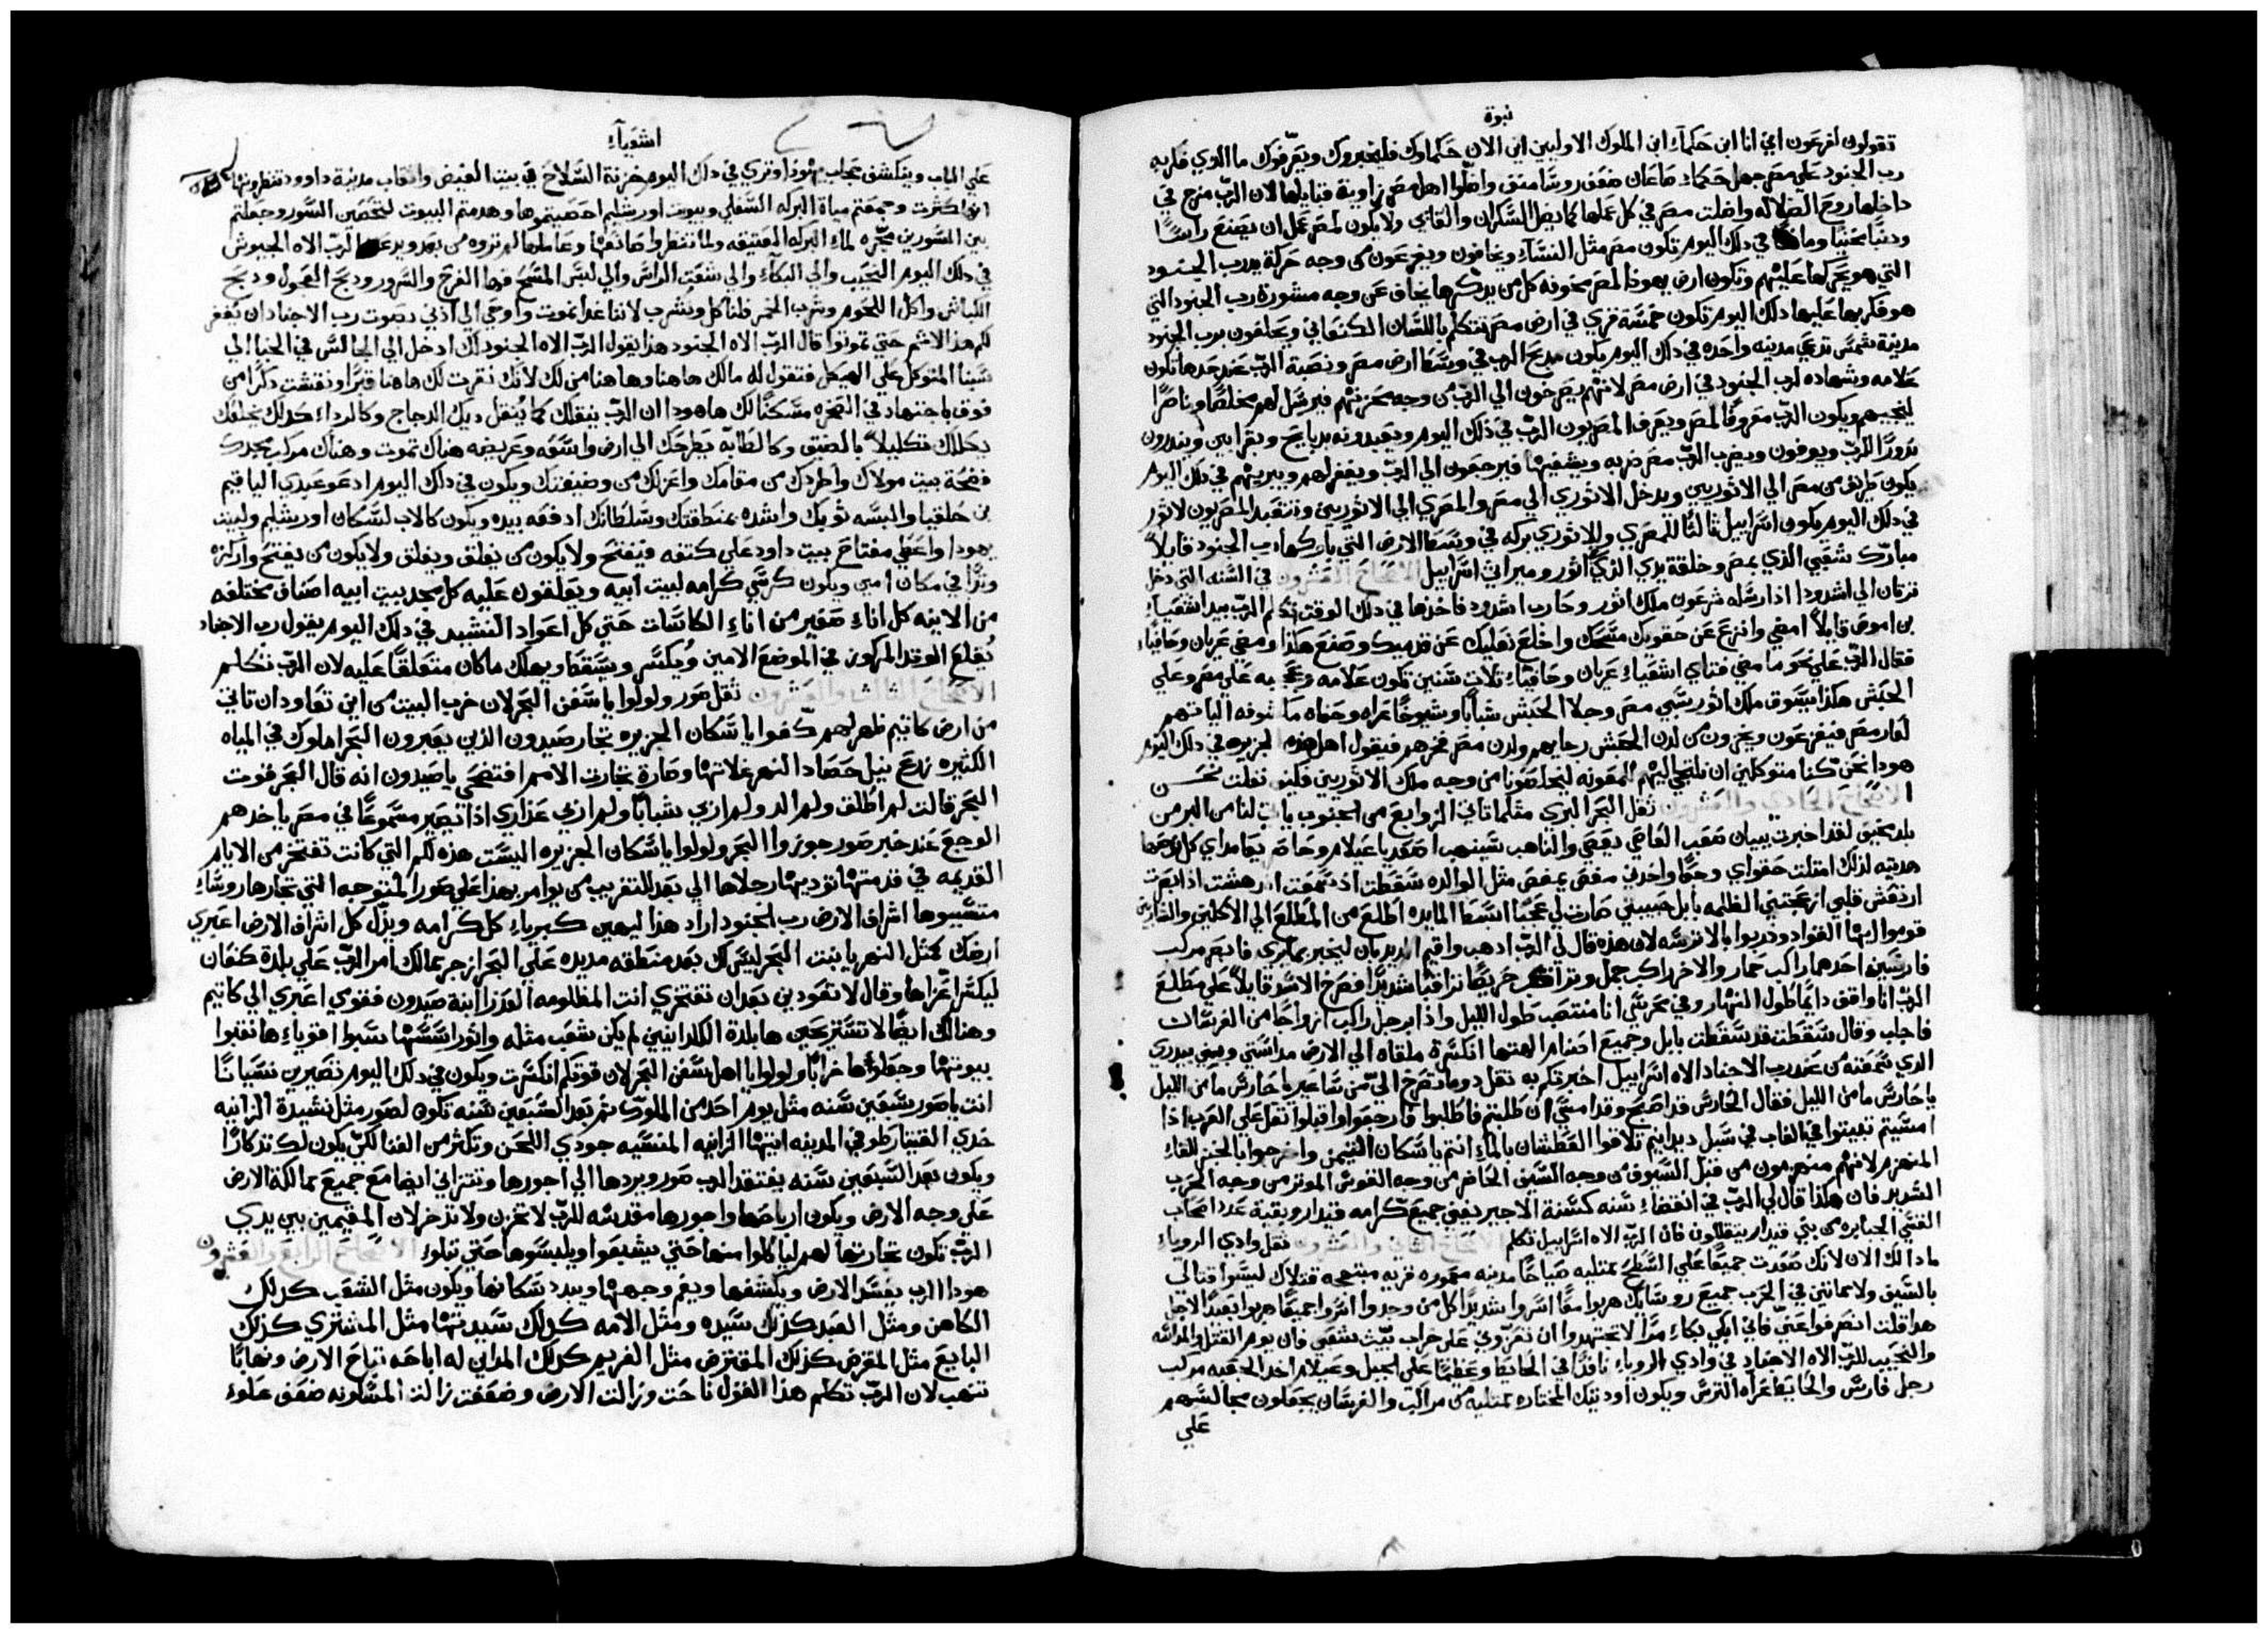 نبوة
تقولون لفرعون اني انا ابن حكماء ابن الملوك الاولين اين الان حكماوك فليخبروك ويعرفوك ما الذي فكر به
رب الجنود علي مصر جهل حكماء صاعان ضعف روسا منف واضلوا اهل مصر زاوية قبايلها لان الرب مزج في
داخلها روح الضلاله واضلت مصر في كل عملها كما يضل السكران والقاي ولا يكون لمصر عمل ان يصنع راسا
وذنبا في ذلك اليوم تكون مصر مثل النساء ويخافون ويفزعون من وجه حركة يد رب الجنود
التي هو يحركها عليهم وتكون ارض يهوذا لمصر مخوفه كل من يذكرها يخاف عن وجه مشورة رب الجنود التي
هو فكر بها عليها ذلك اليوم تكون خمسة قري في ارض مصر تتكلم باللسان الكنعاني ويحلفون برب الجنود
مدينة شمس تدعي مدينه واحده في ذلك اليوم يكون مذبح الرب في وسط ارض مصر ونصبة الرب عند حدها تكون
علامه وشهاده لرب الجنود في ارض مصر لانهم يصرخون الي الرب من وجه محزنهم فيرسل لهم مخلصا وناصرا
لينجيهم ويكون الرب معروفا لمصر ويعرف المصريون الرب في ذلك اليوم ويعبدونه بدبايح وبقرابين وينذرون
نذورا للرب ويوفون ويضرب الرب مصر ضربه ويشفيها فيرجعون الي الرب ويغفر لهم ويبريهم في ذلك اليوم
يكون طريق من مصر الي الاثوريين ويدخل الاثوري الي مصر والمصري الي الاثوريين وتتعبد المصريون لاثور
في ذلك اليوم يكون اسراييل ثالثا للمصري وللاثوري بركه في وسط الارض التي باركها رب الجنود قايلا
مبارك شعبي الذي بمصر وخلقة يدي الذي اثور وميراثي اسراييل الاصحاح العشرون في السنه التي دخل
ترتان الي اشدود اذ ارسله شرعون ملك اثور وحارب اشدود فاخذها في ذلك الوقت تكلم الرب بيد اشعياء
بن اموص قايلا امضي وانزع عن حقويك مسحك واخلع نعليك عن قدميك وصنع هكذا ومضي عريان وحافياء
فقال الرب علي نحو ما مشي فتاي اشعياء عريان وحافياء ثلاث سنين تكون علامه وعجبه علي مصر وعلي
الحبش هكذا يسوق ملك اثور سبي مصر وجلا الحبش شبابا وشيوخا عراه وحفاه
لعار مصر فيفزعون ويخزون من لدن الحبش رجايهم ولدن مصر فخرهم فيقول اهل هذه الجزيره في ذلك اليوم
هوذا نحن كنا متوكلين ان نلتجي اليهم للمعونه ليخلصونا من وجه ملك الاثوريين فكيف نفلت نحن
الاصحاح الحادي والعشرون ثقل البحر البري مثلما تاتي الزوابع من الجنوب لنا من البر من
بلد مخيف لقد اخبرت ببيان صعب العاصي يعصي والناهب ينهب اصعد يا عيلام وحاصر يا ماداي
لذلك امتلت حقواي وجعا واخذني مغص مثل الوالده سقطت اذ سمعت اندهشت اذ ابصرت
ارتعش قلبي ازعجتني الظلمه بابل حبيبتي صارت لي عجبا ابسط المايده اطلع من المطلع الي الاكلين والشاربين
قوموا ايها القواد وخذوا الاترسه لان هذه قال لي الرب اذهب واقيم الديدبان ليخبر بما يري فابصر مركب
فارسين احدهما راكب حمار والاخر راكب جمل وتراقب حريصا تراقبا شديدا فصرخ الاسد قايلا علي مطلع
الرب انا واقف دايما طول النهار وفي محرسي انا منتصب طول الليل واذا برجل راكب ازواجا من الفرسان
فاجاب وقال سقطت قد سقطت بابل وجميع اصنام الهتها انكسرت ملقاه الي الارض مداستي وبني بيدري
الذي سمعته من عند رب الاجناد الاله اسراييل اخبرتكم به ثقل دوما تصرخ الي من ساعير يا حارس ما من الليل
يا حارس ما من الليل فقال الحارس قد اصبح وقد امسي ان طلبتم فاطلبوا فارجعوا واقبلوا ثقل علي العرب اذا
امسيتم تبيتوا في الغاب في سبل ديدانيم تلاقوا العطشان بالماء انتم يا سكان التيمن واخرجوا بالخبز للقاء
المنهزم لانهم منهزمون من قبل السيوف من وجه السيف الحاضر من وجه القوس الموتر من وجه الحرب
الشديد فان هكذا قال لي الرب في انقضاء سنه كسنة الاجير يفني جميع كرامه قيدار وبقية عدد اصحاب
القسي الجبابره من بني قيدار يتقللون فان الرب الاه اسراييل تكلم الاصحاح الثاني والعشرون ثقل وادي الروياء
ماذا لك الان لانك صعدت جميعا علي السطح ممتليه صياحا مدينه معموره قريه مبتهجه قتلاك ليسوا قتالي
بالسيف ولا مماتين في الحرب جميع روسايك هربوا معا اسروا شديدا كل من وجدوا اسروا جميعا هربوا بعيدا لاجل
هذا قلت انصرفوا عني فاني ابكي بكاء مرا لا تجتهدوا ان تعزوني علي خراب بيت شعبي فان يوم القتل والمداسه
والنحيب للرب الاه الاجناد في وادي الروياء ناقدا في الحايط وعظيما علي الجبل وعيلام اخذ الجعبه مركب
رجل فارس والحايط عراه الترس ويكون اوديتك المختاره ممتليه من مراكب والفرسان يجعلون مجالسهم
علي
اشعياء
علي الباب وينكشف حجاب يهوذا وتري في ذلك اليوم خزنة السلاح في بيت الغيض وانقاب مدينة داوود تنظرونها
انها كثرت وجمعتم مياه البركه السفلي وبيوت اورشليم احصيتموها وهدمتم البيوت لتحصين السور وجعلتم
بين السورين مجره لماء البركه العتيقه ولما تنظروا صانعها وعاملها لم تروه من بعد ويدعو الرب الاه الجيوش
في ذلك اليوم النحيب والي البكاء والي شعث الراس والي لبس المسح فهوذا الفرح والسرور وذبح العجول وذبح
الكباش واكل اللحوم وشرب الخمر فلناكل ونشرب لاننا غدا نموت واوحي الي اذني بصوت رب الاجناد ان يغفر
لكم هذا الاثم حتي تموتوا قال الرب الاه الجنود هذا يقول الرب الاه الجنود لك ادخل الي الجالس في الخبا الي
شبنا المتوكل علي الهيكل فتقول له مالك هاهنا وهاهنا من لك لانك نقرت لك هاهنا قبرا ونقشت ذكرا من
فوق باجتهاد في الصخره مسكنا لك هاهوذا ان الرب ينقلك كما يُنقل ديك الدجاج وكالرداء كذلك يخلعك
يكللك تكليلا بالضيق وكالطابه يطرحك الي ارض واسعه وعريضه هناك تموت وهناك مركب مجدك
فضحة بيت مولاك واطردك من مقامك واعزلك من وضيفتك ويكون في ذلك اليوم ادعو عبدي الياقيم
بن حلقيا والبسه ثوبك واشده بمنطقتك وسلطانك ادفعه بيده ويكون كالاب لسكان اورشليم ولبيت
يهوذا واعطي مفتاح بيت داود علي كتفه فيفتح ولا يكون من يغلق ويغلق ولا يكون من يفتح واركزه
وتدا في مكان امين ويكون كرسي كرامه لبيت ابيه ويعلقون عليه كل مجد بيت ابيه اصناف مختلفه
من الانيه كل اناء صغير من اناء الكاسات حتي كل اعواد النشيد في ذلك اليوم يقول رب الاجناد
يُقلع الوتد المركوز في الموضع الامين ويُكسر ويسقط ويهلك ما كان متعلقا عليه لان الرب تكلم
الاصحاح الثالث والعشرون ثقل صور ولولوا يا سفن البحر لان خرب البيت من اين تعاودان تاتي
من ارض كاتيم ظهر لهم كفوا يا سكان الجزيره تجار صيدون الذين يعبرون البحر املوك في المياه
الكثيره زرع نيل حصاد النهر غلاتها وصارة تجارت الامم افتضحي يا صيدون انه قال البحر قوت
البحر قالت لم اطلق ولم الد ولم اربي شبابا ولم اربي عذاري اذا تصير مسموعا في مصر ياخدهم
الوجع عند خبر صور جوزوا البحر ولولوا يا سكان الجزيره اليست هذه لكم التي كانت تفتخر من الايام
القديمه في قدمتها توديها رجلاها الي بعد التقريب من يوامر بهذا علي صور المتوجه التي تجارها روساء
متسببوها اشراف الارض رب الجنود اراد هذا ليهين كبرياء كل كرامه ويذل كل اشراف الارض اعبري
ارضك كمثل النهر يا بنت البحر ليس لك بعد منطقه مديده علي البحر ازجر ممالك امر الرب علي بلدة كنعان
ليكسر اعزاها وقال لا تعودين بعد ان تفتخري انت المظلومه العذرا ابنة صيدون فقومي اعبري الي كاتيم
وهنالك ايضا لا تستريحين ها بلدة الكلدانيين لم يكن شعب مثله واثور اسسها سبوا اقوياءها نقبوا
بيوتها وجعلوها خرابا ولولوا يا اهل سفن البحر لان قوتكم انكسرت ويكون في ذلك اليوم تصيرين نسيانا
انت يا صور سبعين سنه مثل يوم احد من الملوك ثم بعد السبعين سنه تكون لصور مثل نشيدة الزانيه
خدي القيثار طوفي المدينه ايتها الزانيه المنسيه جودي اللحن وتكثر من الغنا لكي يكون لك تذكارا
ويكون بعد السبعين سنه يفتقد الرب صور ويردها الي اجورها وتتزاني ايضا مع جميع ممالكة الارض
علي وجه الارض ويكون ارباحها واجورها مقدسه للرب لا تخزن ولا تذخر لان المقيمين بين يدي
الرب تكون تجارتها لهم لياكلوا منها حتي يشبعوا ويلبسوها حتي تبلوء الاصحاح الرابع والعشرون
هوذا الرب يفسد الارض ويكشفها ويغم وجهها ويبدد سكانها ويكون مثل الشعب كذلك
الكاهن ومثل العبد كذلك سيده ومثل الامه كذلك سيدتها مثل المشتري كذلك
البايع مثل المقرض كذلك المقترض مثل الغريم كذلك المداين له اباحه تباح الارض ونهابا
تنهب لان الرب تكلم هذا القول ناحت وزالت الارض وضعفت زالت المسكونه ضعف علوء